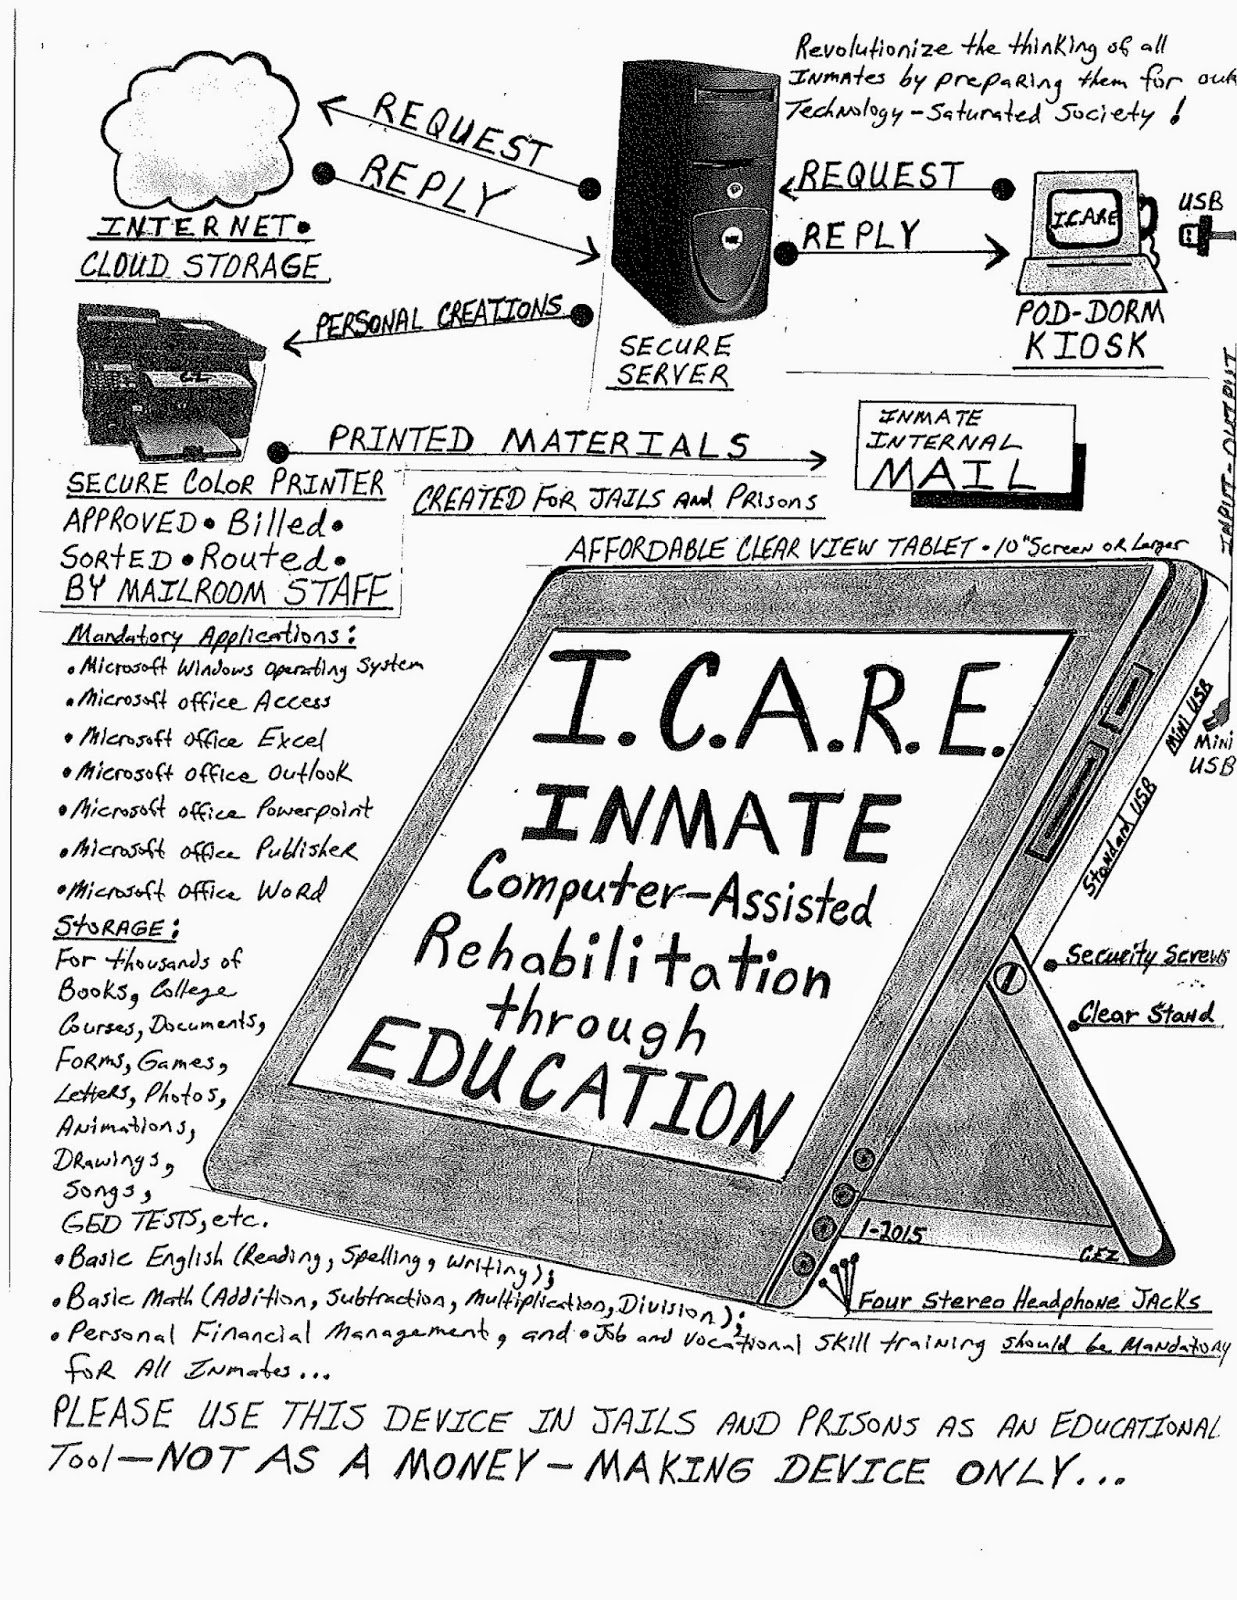 Revolutionize the thinking of all
Inmates by preparing them for our
Technology-Saturated Society!
REQUEST
REPLY
INTERNET•
CLOUD STORAGE
REQUEST
REPLY
I.CARE
USB
POD-DORM
KIOSK
PERSONAL CREATIONS
SECURE
SERVER
INPUT-OUTPUT
PRINTED MATERIALS
INMATE
INTERNAL
MAIL
SECURE COLOR PRINTER
APPROVED• Billed•
SORTED•Routed•
BY MAILROOM STAFF
CREATED FOR JAILS AND PRISONS
AFFORDABLE CLEAR VIEW TABLET • 10" Screen OR Larger
Mandatory Applications:
•Microsoft Windows Operating System
•Microsoft Office Access
•Microsoft Office Excel
•Microsoft Office Outlook
•Microsoft Office Powerpoint
•Microsoft Office Publisher
•Microsoft Office Word
STORAGE:
For thousands of
Books, College
Courses, Documents,
Forms, Games,
Letters, Photos,
Animations,
Drawings,
Songs,
GED TESTS, etc.
I.C.A.R.E.
INMATE
Computer-Assisted
Rehabilitation
through
EDUCATION
Mini USB
Mini
USB
Standard USB
Security Screws
Clear Stand
1-2015
CEZ
Four Stereo Headphone Jacks
•Basic English (Reading, Spelling, Writing);
•Basic Math (Addition, Subtraction, Multiplication, Division);
•Personal Financial Management, and •Job and Vocational Skill training should be Mandatory
for All Inmates...
PLEASE USE THIS DEVICE IN JAILS AND PRISONS AS AN EDUCATIONAL
Tool—NOT AS A MONEY-MAKING DEVICE ONLY...